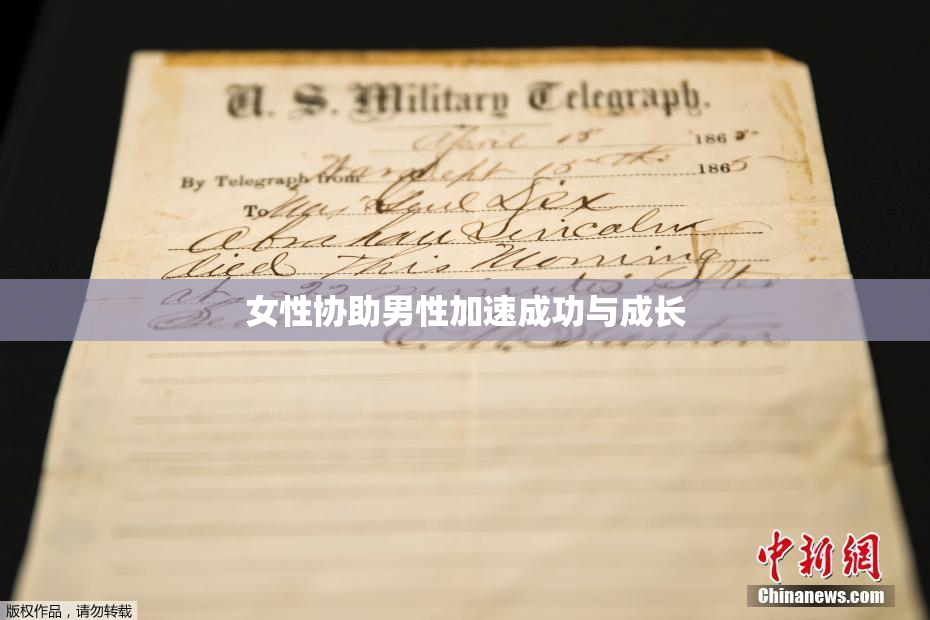 U. S. Military Telegraph.
April 15 1865
By Telegraph from War Dept 15th 1865
To Maj Genl Dix
Abraham Lincoln
died This Morning
at 22 minutes after
女性协助男性加速成功与成长
中新网
Chinanews.com
版权作品，请勿转载